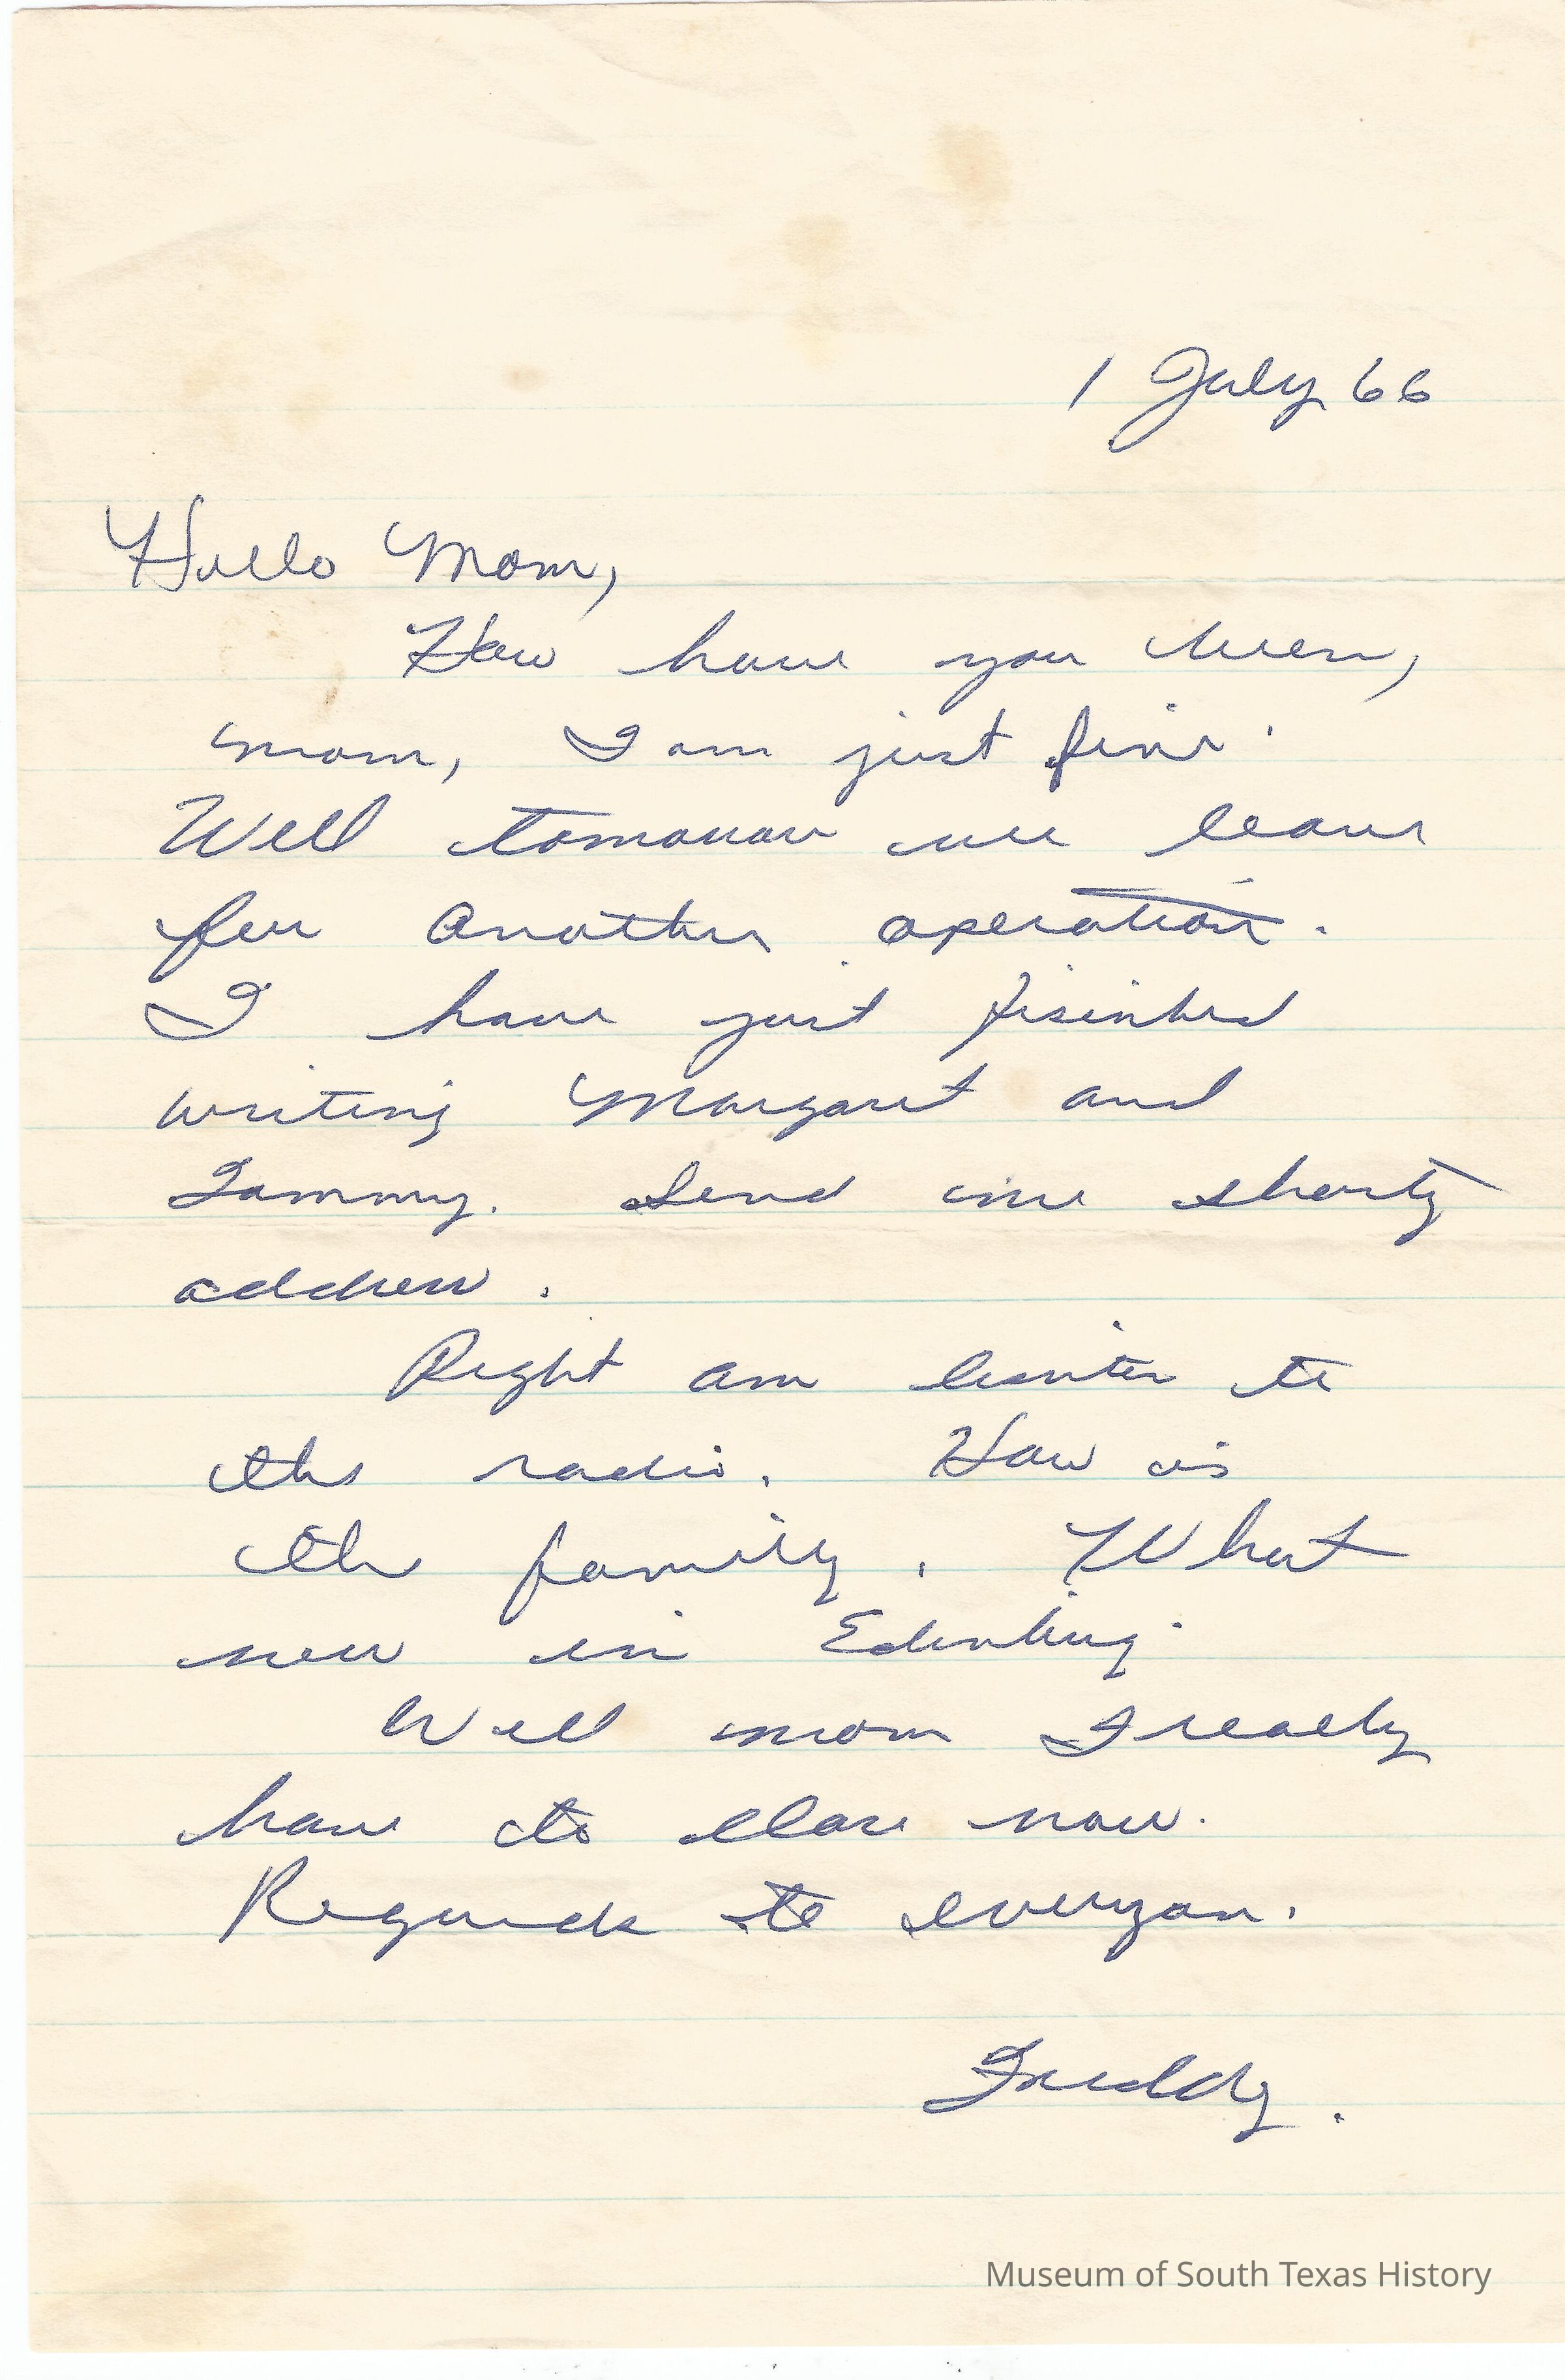 1 July 66
Hello Mom,
How have you been,
mom, I am just fine.
Well tomorrow we leave
for another operation.
I have just fisinhed
writing Margaret and
Sammy. Send me shorty
address.
Right am lisiten to
the radio. How is
the family. What
new in Edinburg.
Well mom I really
have to close now.
Regards to everyon.
Freddy.
Museum of South Texas History